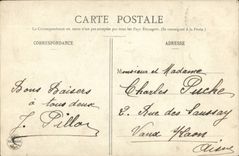 CARTE POSTALE
La Correspondance au recto n'est pas acceptée par tous les Pays Étrangers. (Se renseigner à la Poste.)
CORRESPONDANCE
ADRESSE
Monsieur et Madame
Charles Puche
2. Rue des
Bons Baisers
à tous deux
J. Pillon
Aisne